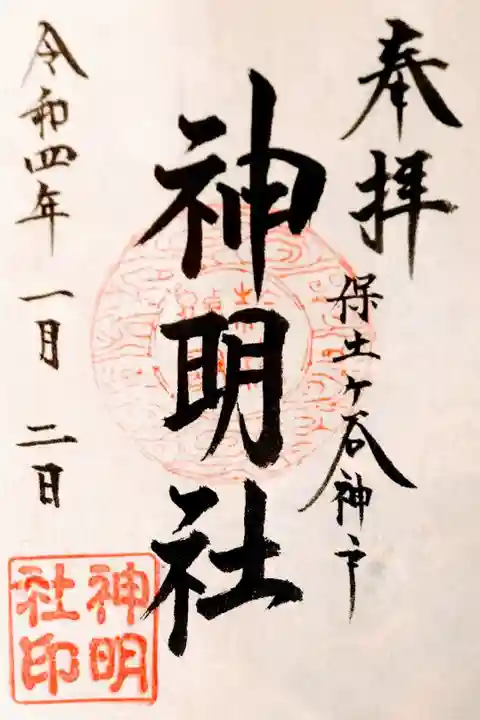 奉拝
保土ヶ谷神戸
神明社
令和四年一月二日
神明
社印